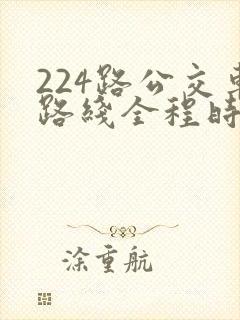 224路公交車
路綫全程時
涂重航